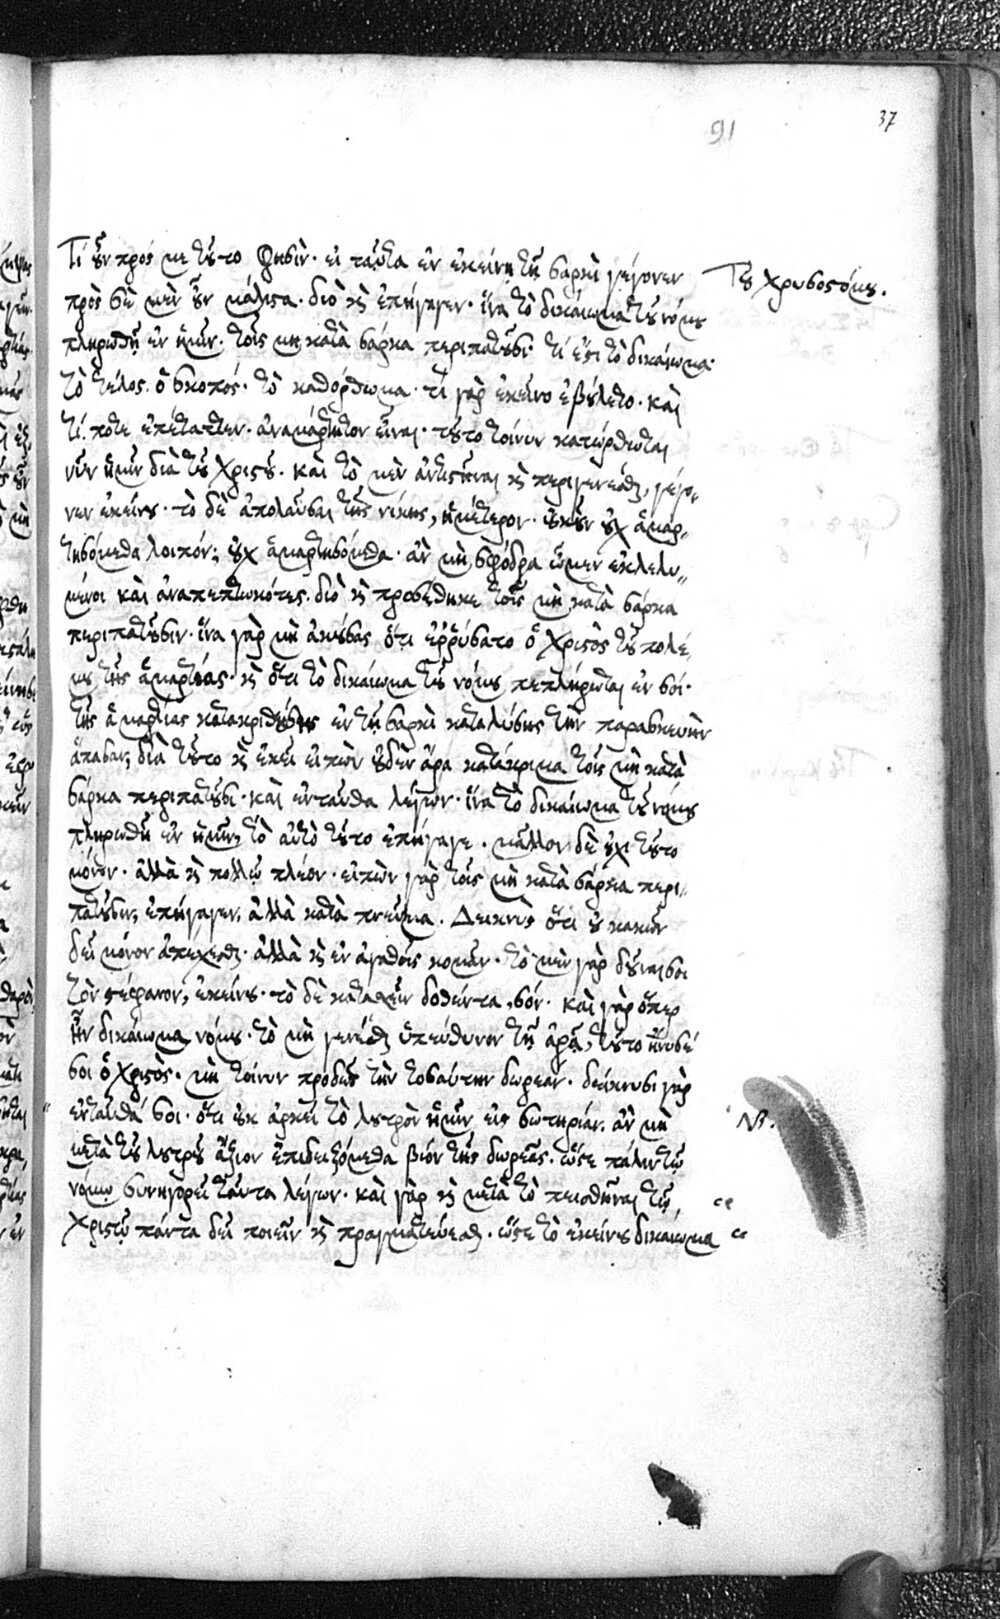 37
91
Τί οὖν πρός με τοῦτο φησὶν· εἰ ταῦτα ἐν ἐκείνῃ τῇ σαρκὶ γέγονεν
Τοῦ Χρυσοστόμου.
πρὸς σὲ μὲν οὖν μάλιστα· διὸ καὶ ἐπήγαγεν· ἵνα τὸ δικαίωμα τοῦ νόμου
πληρωθῇ ἐν ἡμῖν· τοῖς μὴ κατὰ σάρκα περιπατοῦσι· τί ἐστι τὸ δικαίωμα·
τὸ τέλος· ὁ σκοπός· τὸ κατόρθωμα· τί γὰρ ἐκεῖνο ἐβούλετο· καὶ
τί ποτε ἐπέταττεν· ἀναμάρτητον εἶναι· τοῦτο τοίνυν κατώρθωται
νῦν ἡμῖν διὰ τοῦ Χριστοῦ· καὶ τὸ μὲν ἀντιστῆναι καὶ περιγενέσθαι, γέγο-
νεν ἐκείνου· τὸ δὲ ἀπολαῦσαι τῆς νίκης, ἡμέτερον· οὐκοῦν οὐχ ἁμαρ-
τησόμεθα λοιπόν; οὐχ ἁμαρτησόμεθα· ἂν μὴ σφόδρα ὦμεν ἐκλελυ-
μένοι καὶ ἀναπεπτωκότες· διὸ καὶ προσέθηκε τοῖς μὴ κατὰ σάρκα
περιπατοῦσιν· ἵνα γὰρ μὴ ἀκούσας ὅτι ἐρρύσατο ὁ Χριστὸς τοῦ πολέ-
μου τῆς ἁμαρτίας· καὶ ὅτι τὸ δικαίωμα τοῦ νόμου πεπλήρωται ἐν σοί·
τῆς ἁμαρτίας κατακριθείσης ἐν τῇ σαρκὶ καταλύσῃς τὴν παρασκευὴν
ἅπασαν, διὰ τοῦτο καὶ ἐκεῖ εἰπὼν οὐδὲν ἄρα κατάκριμα τοῖς μὴ κατὰ
σάρκα περιπατοῦσι· καὶ ἐνταῦθα λέγων· ἵνα τὸ δικαίωμα τοῦ νόμου
πληρωθῇ ἐν ἡμῖν, τὸ αὐτὸ τοῦτο ἐπήγαγε· μᾶλλον δὲ οὐχὶ τοῦτο
μόνον· ἀλλὰ καὶ πολλῷ πλέον· εἰπὼν γὰρ τοῖς μὴ κατὰ σάρκα περι-
πατοῦσιν, ἐπήγαγεν, ἀλλὰ κατὰ πνεῦμα· Δεικνὺς ὅτι οὐ κακῶν
δεῖ μόνον ἀπέχεσθαι· ἀλλὰ καὶ ἐν ἀγαθοῖς κομᾶν· τὸ μὲν γὰρ δοῦναί σοι
τὸν στέφανον, ἐκείνου· τὸ δὲ κατασχεῖν δοθέντα, σόν· καὶ γὰρ ὅπερ
ἦν δικαίωμα νόμου· τὸ μὴ γενέσθαι ὑπεύθυνον τῇ ἀρᾷ, τοῦτο ἤνυσέ
σοι ὁ Χριστός· μὴ τοίνυν προδῷς τὴν τοσαύτην δωρεάν· δείκνυσι γὰρ
“ ἐνταῦθά σοι· ὅτι οὐκ ἀρκεῖ τὸ λουτρὸν ἡμῖν εἰς σωτηρίαν, ἂν μὴ
ΝΒ.
μετὰ τὸ λουτρὸν ἄξιον ἐπιδειξόμεθα βίον τῆς δωρεᾶς· ὥστε πάλιν τῷ
νόμῳ συνηγορεῖ ταῦτα λέγων· καὶ γὰρ καὶ μετὰ τὸ πεισθῆναι τῷ “
Χριστῷ πάντα δεῖ ποιεῖν καὶ πραγματεύεσθαι· ὥστε τὸ ἐκείνου δικαίωμα “